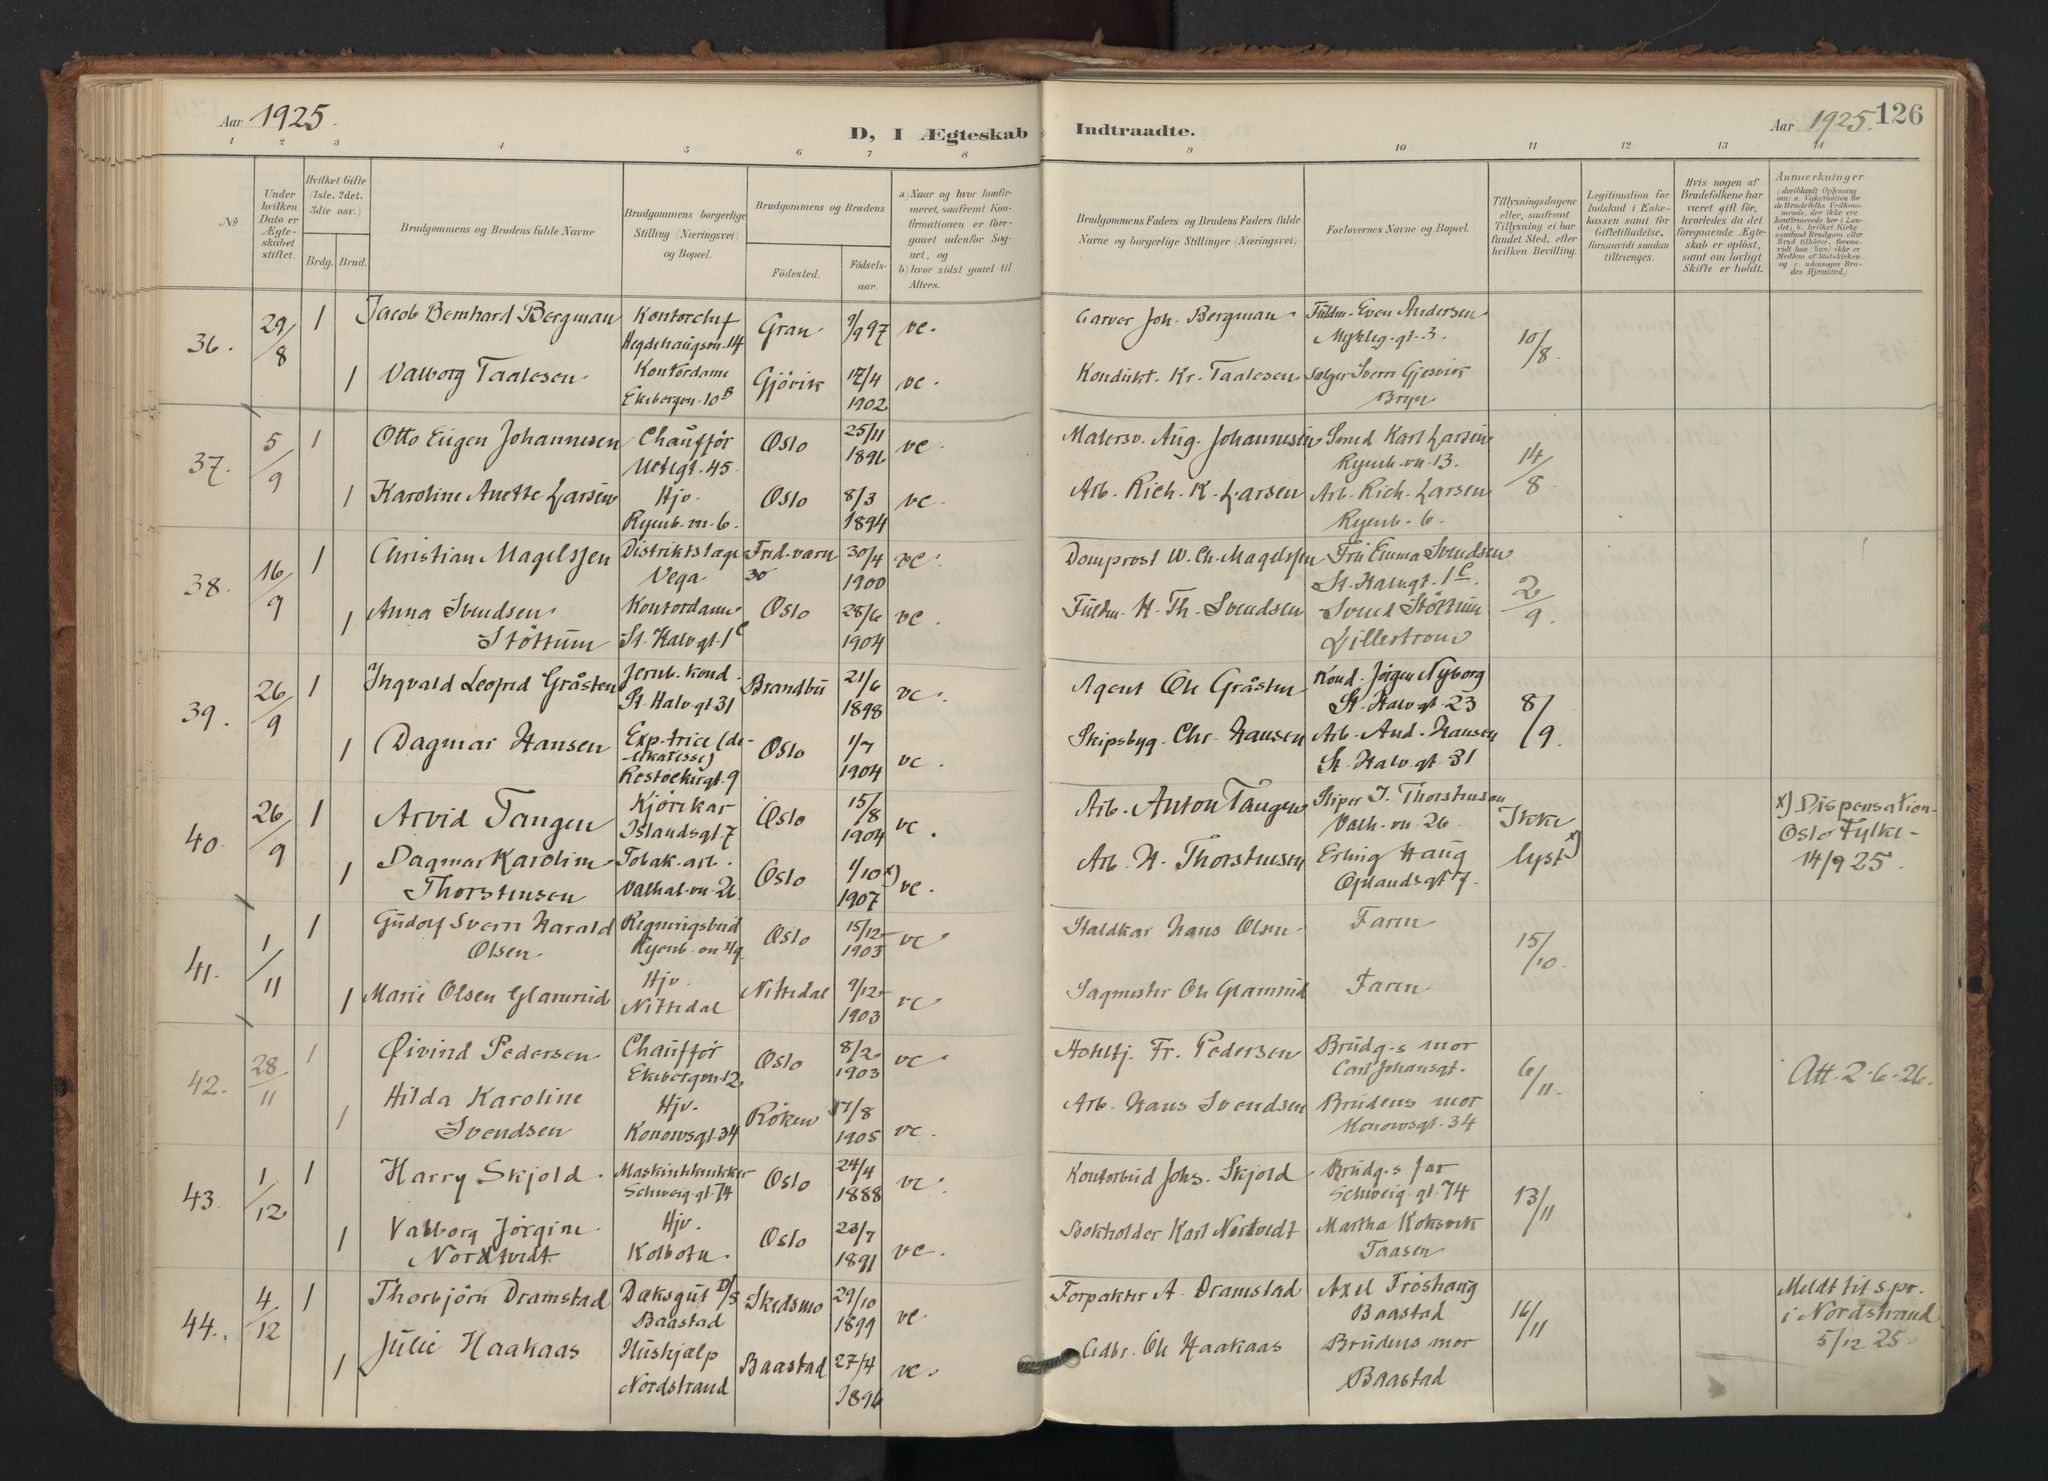 Aar 1925.
D, I Ægteskab Indtraadte.
Aar 1925. 126
1 2 3 4 5 6 7 8 9 10 11 12 13 14
No
Under hvilken Dato er Ægteskabet stiftet.
Hvilket Gifte (1ste, 2det, 3die osv.)
Brdg. Brud.
Brudgommens og Brudens fulde Navne
Brudgommens borgerlige Stilling (Næringsvei) og Bopæl.
Brudgommens og Brudens
Födested. Födsels-aar.
a) Naar og hvor konfirmeret, saafremt Konfirmationen er foregaaet udenfor Sognet, og
b) hvor sidst gaaet til Alters.
Brudgommens Faders og Brudens Faders fulde Navne og borgerlige Stillinger (Næringsvei)
Forlovernes Navne og Bopæl.
Tillysningsdagene eller, saafremt Tillysning ei har fundet Sted, efter hvilken Bevilling.
Legitimation for Indskud i Enkekassen samt for Giftetilladelse, forsaavidt saadan tiltrænges.
Hvis nogen af Brudefolkene har været gift før, hvorledes da det foregaaende Ægteskab er oplöst, samt om lovligt Skifte er holdt.
Anmerkninger
36. 29/8 1 Jacob Bernhard Bergman Kontorchef Gran 9/9 97 vc. Garver Joh. Bergman. Fuldm. Even Andersen 10/8
Hegdehaugsvn. 14 Mykleg.gt. 3.
1 Valborg Taalesen Kontordame Gjövik 12/4 vc. Kondukt. Kr. Taalesen Sælger Sverre Gjesvik
Ekebergvn. 10B 1902 Bryn
37. 5/9 1 Otto Eugen Johannesen Chaufför Oslo 25/11 vc. Malersv. Aug. Johannesen Smed Karl Larsen 14/8
gt. 45. 1896 Ryenb.vn 13.
1 Karoline Anette Larsen Hjv. Oslo 8/3 vc. Arb. Rich. K. Larsen Arb. Rich. Larsen
Ryenb.vn. 6. 1894 Ryenb. 6.
38. 16/9 1 Christian Magelssen Distriktslæge Fred.værn 30/4 vc. Domprost W. Ch. Magelssen Fru Emma Svendsen 2/9
Vega 1900 St. Halvgt. 1C.
1 Anna Svendsen Kontordame Oslo 28/6 vc. Fuldm. H. Th. Svendsen Svend Støttum
Støttum St. Halv.gt. 1C 1904 Lillestrøm
39. 26/9 1 Ingvald Leopold Gråsten Jernb. kond. Brandbu 21/6 vc. Agent Ole Gråsten Kond. Jørgen Nyborg 8/9
St. Halv.gt 31 1898 St. Halv.gt. 23
1 Dagmar Hansen Exp.trice (de- Oslo 1/7 vc. Skipsbyg. Chr. Hansen Arb. And. Hansen
likatesse) 1904 St. Halv.gt. 31
gt. 9
40. 26/9 1 Arvid Tangen Kjørekar Oslo 15/8 vc. Arb. Anton Tangen J. Thorstensen Ikke x) Dispensation
Islandsgt 7 1904 Valh.vn. 26 lyst x) Oslo Fylke
1 Dagmar Karoline Tobak.arb. Oslo 1/10 x) vc. Arb. H. Thorstensen Erling Haug 14/9 25.
Thorstensen Valhal.vn. 26 1907 gt 7.
41. 1/11 1 Gudolf Sverre Harald Regningsbud Oslo 15/12 vc Staldkar Hans Olsen Faren 15/10
Olsen Ryenb.vn 1903
1 Marie Olsen Glamrud Hjv. Nittedal 9/12 vc Sagmester Ole Glamrud Faren
Nittedal 1903
42. 28/11 1 Øivind Pedersen Chaufför Oslo 8/2 vc Fr. Pedersen Brudg.s mor 6/11 Att. 2-6-26.
Ekebergvn. 12. 1903 Carl Johansgt.
1 Hilda Karoline Hjv. Røken 17/8 vc. Arb. Hans Svendsen Brudens mor
Svendsen Konowsgt. 34 1905 Konowsgt. 34
43. 1/12 1 Harry Skjold. Maskintrykker Oslo 24/4 vc. Kontorbud Johs. Skjold Brudg.s far 13/11
Schweig.gt. 74 1888 Schweig.gt. 74
1 Valborg Jørgine Hjv. Oslo 23/7 vc. Bokholder Karl Nordtvedt Martha Koksvik
Nordtvedt Kolbotn 1891 Taasen
44. 4/12 1 Thorbjørn Dramstad Dæksgut D/S Skedsmo 29/10 vc. Forpakter A. Dramstad Axel Frøshaug 16/11 Meldt til spr.
Baastad 1899 Baastad i Nordstrand
1 Julie Haakaas Hushjælp Baastad 27/4 vc. Gdbr. Ole Haakaas Brudens mor 5/12 25.
Nordstrand 1896 Baastad